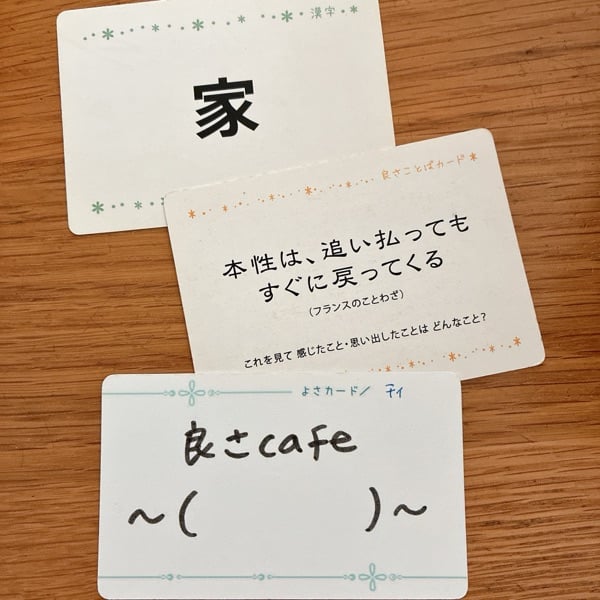 漢字
家
良さことばカード
本性は、追い払っても
すぐに戻ってくる
(フランスのことわざ)
これを見て 感じたこと・思い出したことは どんなこと?
よさカード/
良さcafe
~( )~